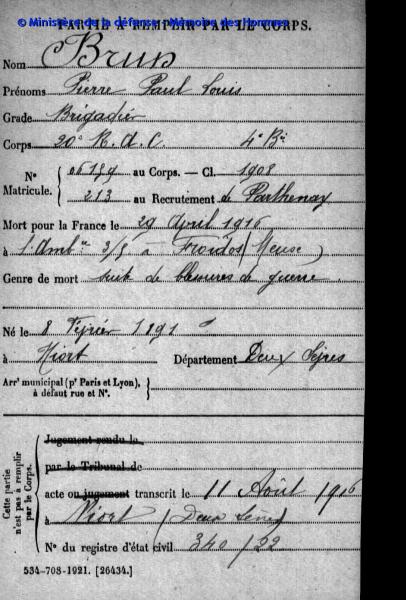 © Ministère de la défense - Mémoire des Hommes
PARTIE À REMPLIR PAR LE CORPS.
Nom Brun
Prénoms Pierre Paul Louis
Grade Brigadier
Corps 20e R.A.C. 4e Bie
N° Matricule. 06159 au Corps. — Cl. 1908
213 au Recrutement de Parthenay
Mort pour la France le 29 Avril 1916
à l'Ambce 3/5 à Froidos (Meuse)
Genre de mort suite de blessures de guerre
Né le 8 Février 1891
à Niort Département Deux Sèvres
Arrt municipal (pr Paris et Lyon), à défaut rue et N°.
Cette partie n'est pas à remplir par le Corps.
Jugement rendu le
par le Tribunal de
acte ou jugement transcrit le 11 Août 1916
à Niort (Deux Sèvres)
N° du registre d'état civil 340/22
534-708-1921. [26434.]